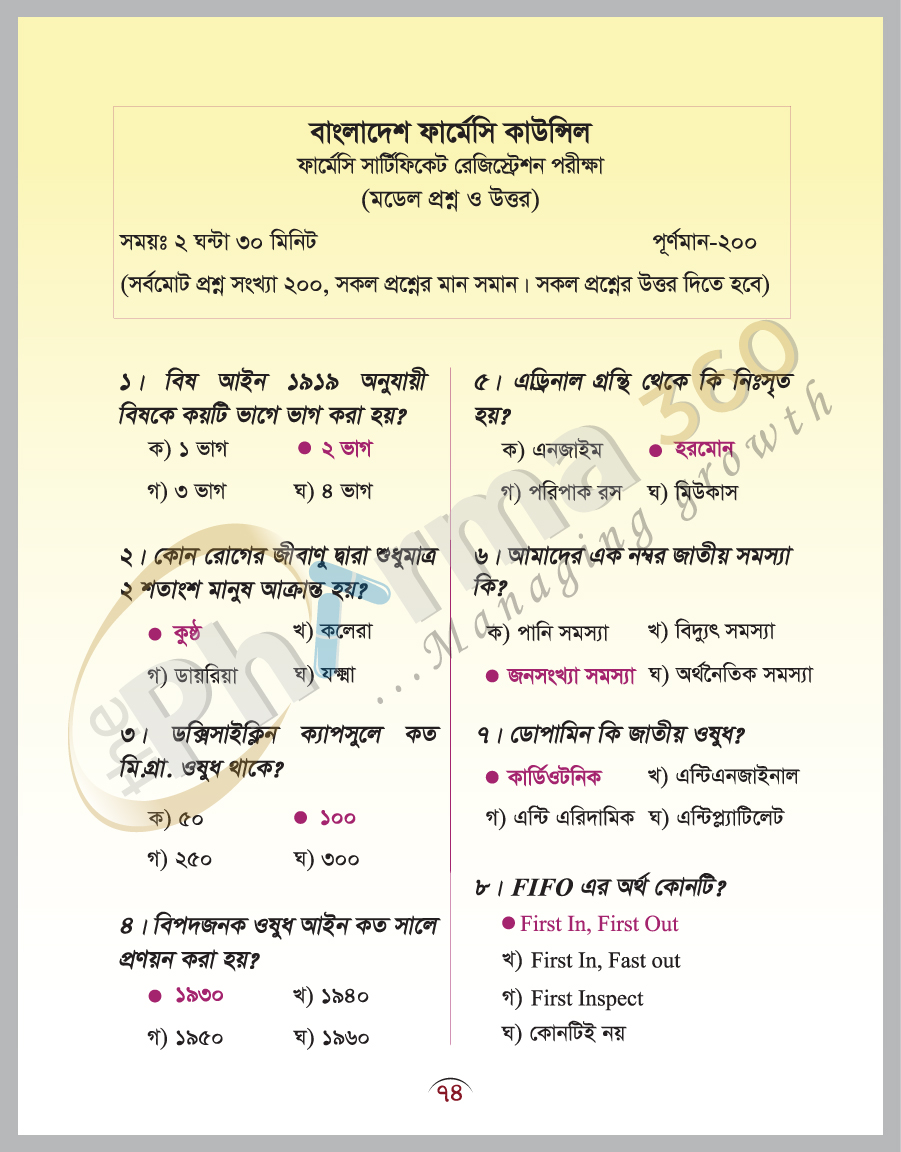 বাংলাদেশ ফার্মেসি কাউন্সিল
ফার্মেসি সার্টিফিকেট রেজিস্ট্রেশন পরীক্ষা
(মডেল প্রশ্ন ও উত্তর)
সময়ঃ ২ ঘন্টা ৩০ মিনিট পূর্ণমান-২০০
(সর্বমোট প্রশ্ন সংখ্যা ২০০, সকল প্রশ্নের মান সমান। সকল প্রশ্নের উত্তর দিতে হবে)
১। বিষ আইন ১৯১৯ অনুযায়ী
বিষকে কয়টি ভাগে ভাগ করা হয়?
ক) ১ ভাগ ● ২ ভাগ
গ) ৩ ভাগ ঘ) ৪ ভাগ
২। কোন রোগের জীবাণু দ্বারা শুধুমাত্র
২ শতাংশ মানুষ আক্রান্ত হয়?
● কুষ্ঠ খ) কলেরা
গ) ডায়রিয়া ঘ) যক্ষ্মা
৩। ডক্সিসাইক্লিন ক্যাপসুলে কত
মি.গ্রা. ওষুধ থাকে?
ক) ৫০ ● ১০০
গ) ২৫০ ঘ) ৩০০
৪। বিপদজনক ওষুধ আইন কত সালে
প্রণয়ন করা হয়?
● ১৯৩০ খ) ১৯৪০
গ) ১৯৫০ ঘ) ১৯৬০
৫। এড্রিনাল গ্রন্থি থেকে কি নিঃসৃত
হয়?
ক) এনজাইম ● হরমোন
গ) পরিপাক রস ঘ) মিউকাস
৬। আমাদের এক নম্বর জাতীয় সমস্যা
কি?
ক) পানি সমস্যা খ) বিদ্যুৎ সমস্যা
● জনসংখ্যা সমস্যা ঘ) অর্থনৈতিক সমস্যা
৭। ডোপামিন কি জাতীয় ওষুধ?
● কার্ডিওটনিক খ) এন্টিএনজাইনাল
গ) এন্টি এরিদামিক ঘ) এন্টিপ্ল্যাটিলেট
৮। FIFO এর অর্থ কোনটি?
● First In, First Out
খ) First In, Fast out
গ) First Inspect
ঘ) কোনটিই নয়
the Pharma 360
...Managing growth
৭৪